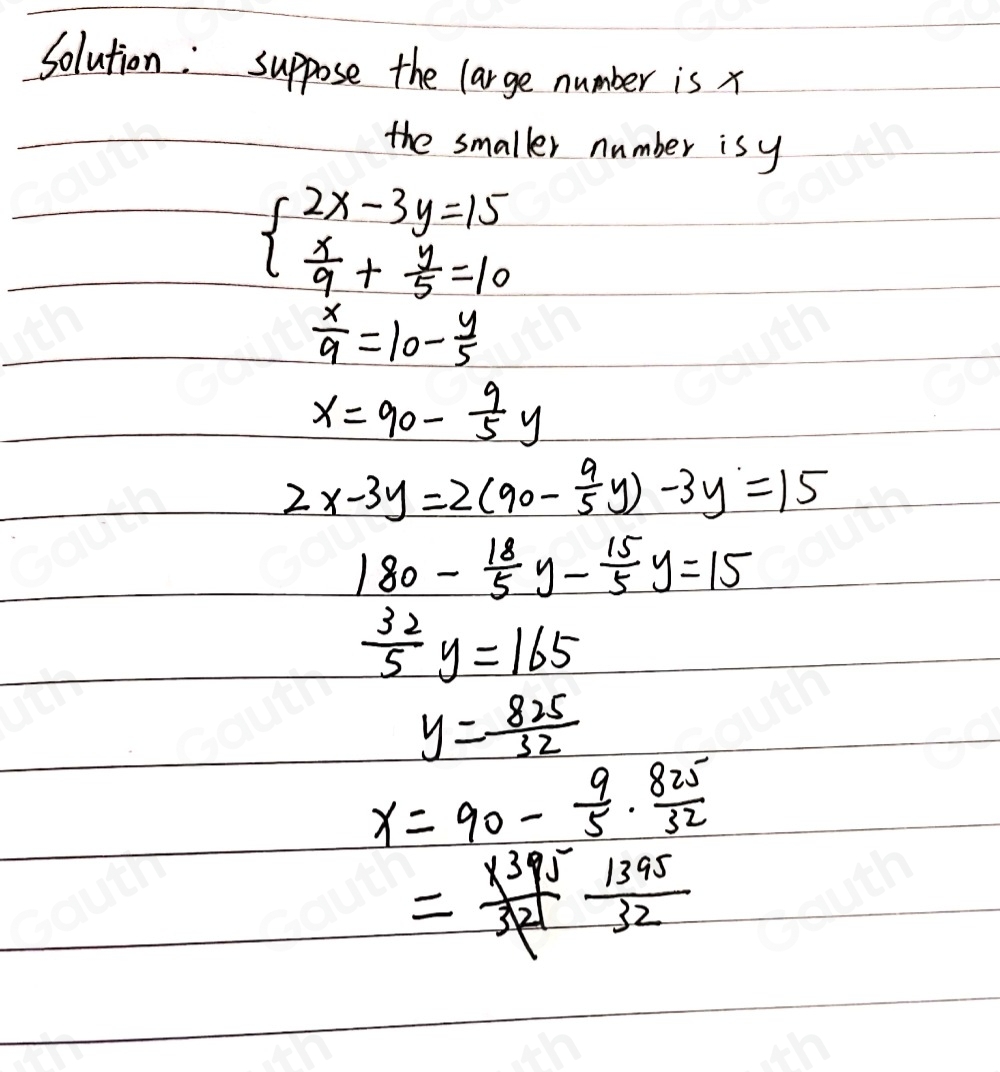 Solution: suppose the large number is x
the smaller number is y
{ 2x - 3y = 15
x/9 + y/5 = 10
x/9 = 10 - y/5
x = 90 - 9/5 y
2x - 3y = 2(90 - 9/5 y) - 3y = 15
180 - 18/5 y - 15/5 y = 15
32/5 y = 165
y = 825/32
x = 90 - 9/5 · 825/32
= 1395/32 1395/32